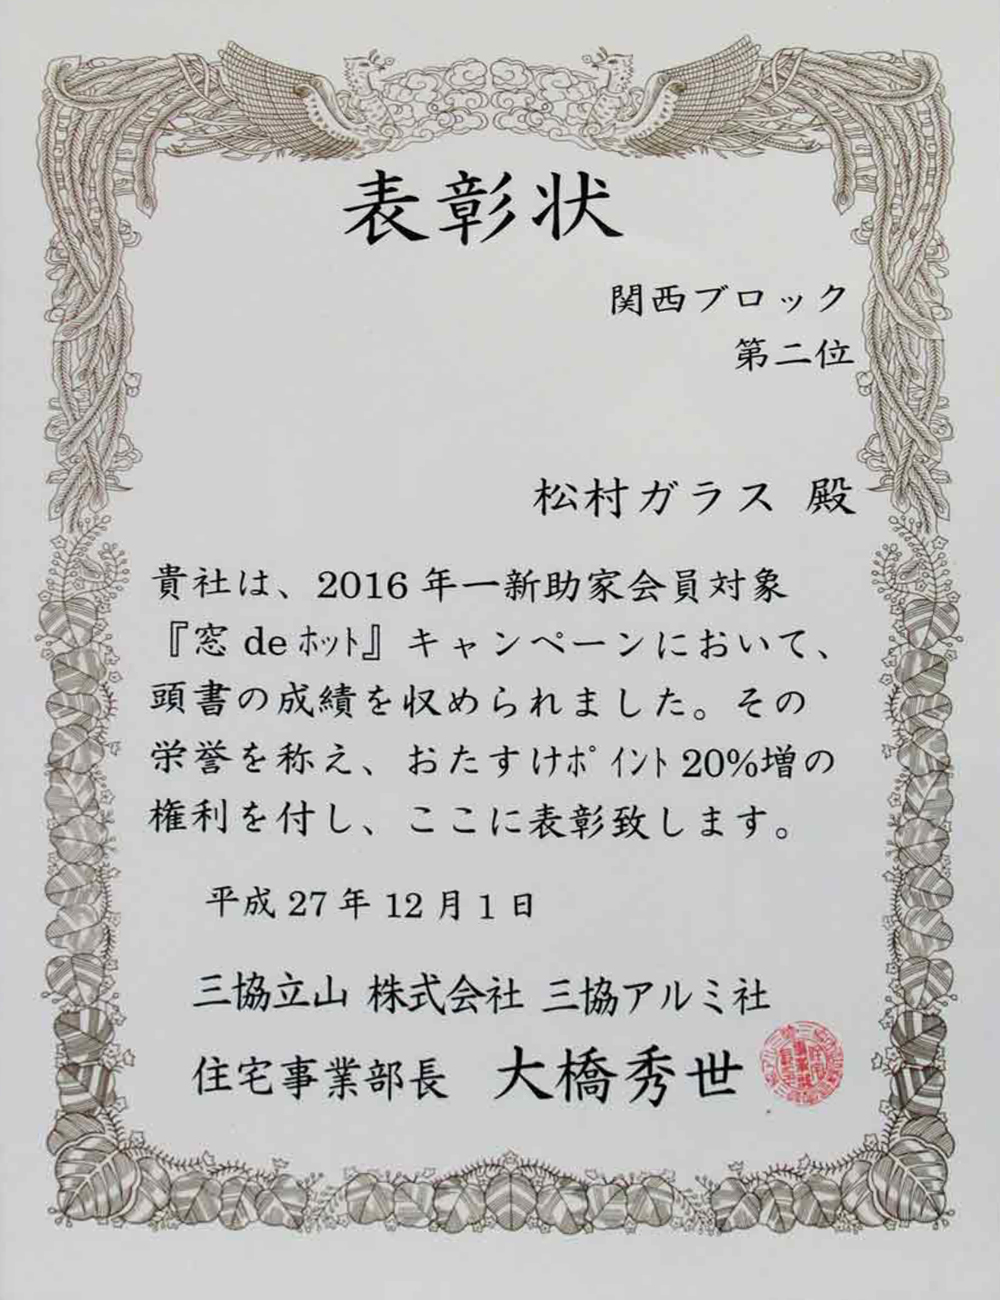 表彰状
関西ブロック
第二位
松村ガラス 殿
貴社は、2016年一新助家会員対象
『窓deホット』キャンペーンにおいて、
頭書の成績を収められました。その
栄誉を称え、おたすけポイント20%増の
権利を付し、ここに表彰致します。
平成27年12月1日
三協立山 株式会社 三協アルミ社
住宅事業部長 大橋秀世